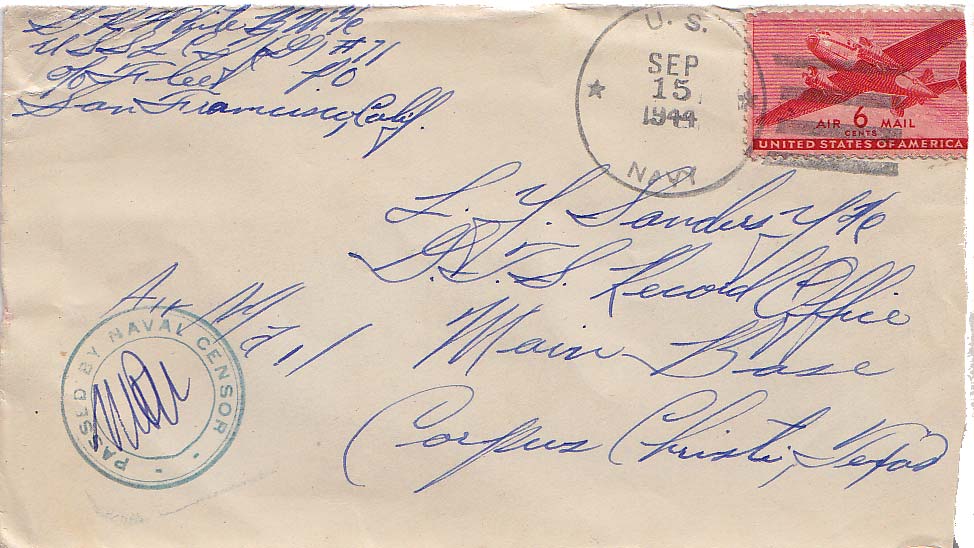 White
U S S L C I (G) #71
c/o Fleet PO
San Francisco, Calif.
U. S.
SEP
15
1944
NAVY
AIR 6 MAIL
CENTS
UNITED STATES OF AMERICA
L. Y. Sanders Y
Record Office
Main Base
Corpus Christi, Texas
Air Mail
PASSED BY NAVAL CENSOR